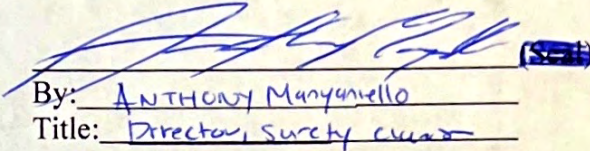 (Seal)
By: ANTHONY Manganiello
Title: Director, Surety